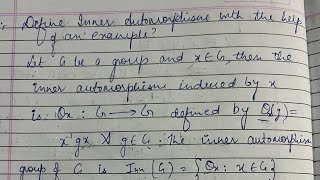 :- Define Inner Automorphisms with the help
of an example?
Let G be a group and x∈G, then the
inner automorphism indexed by x
is: θx : G ⟶ G defined by θ(g) =
x⁻¹gx ∀ g∈G. The inner automorphism
group of G is Inn(G) = {θx : x∈G}